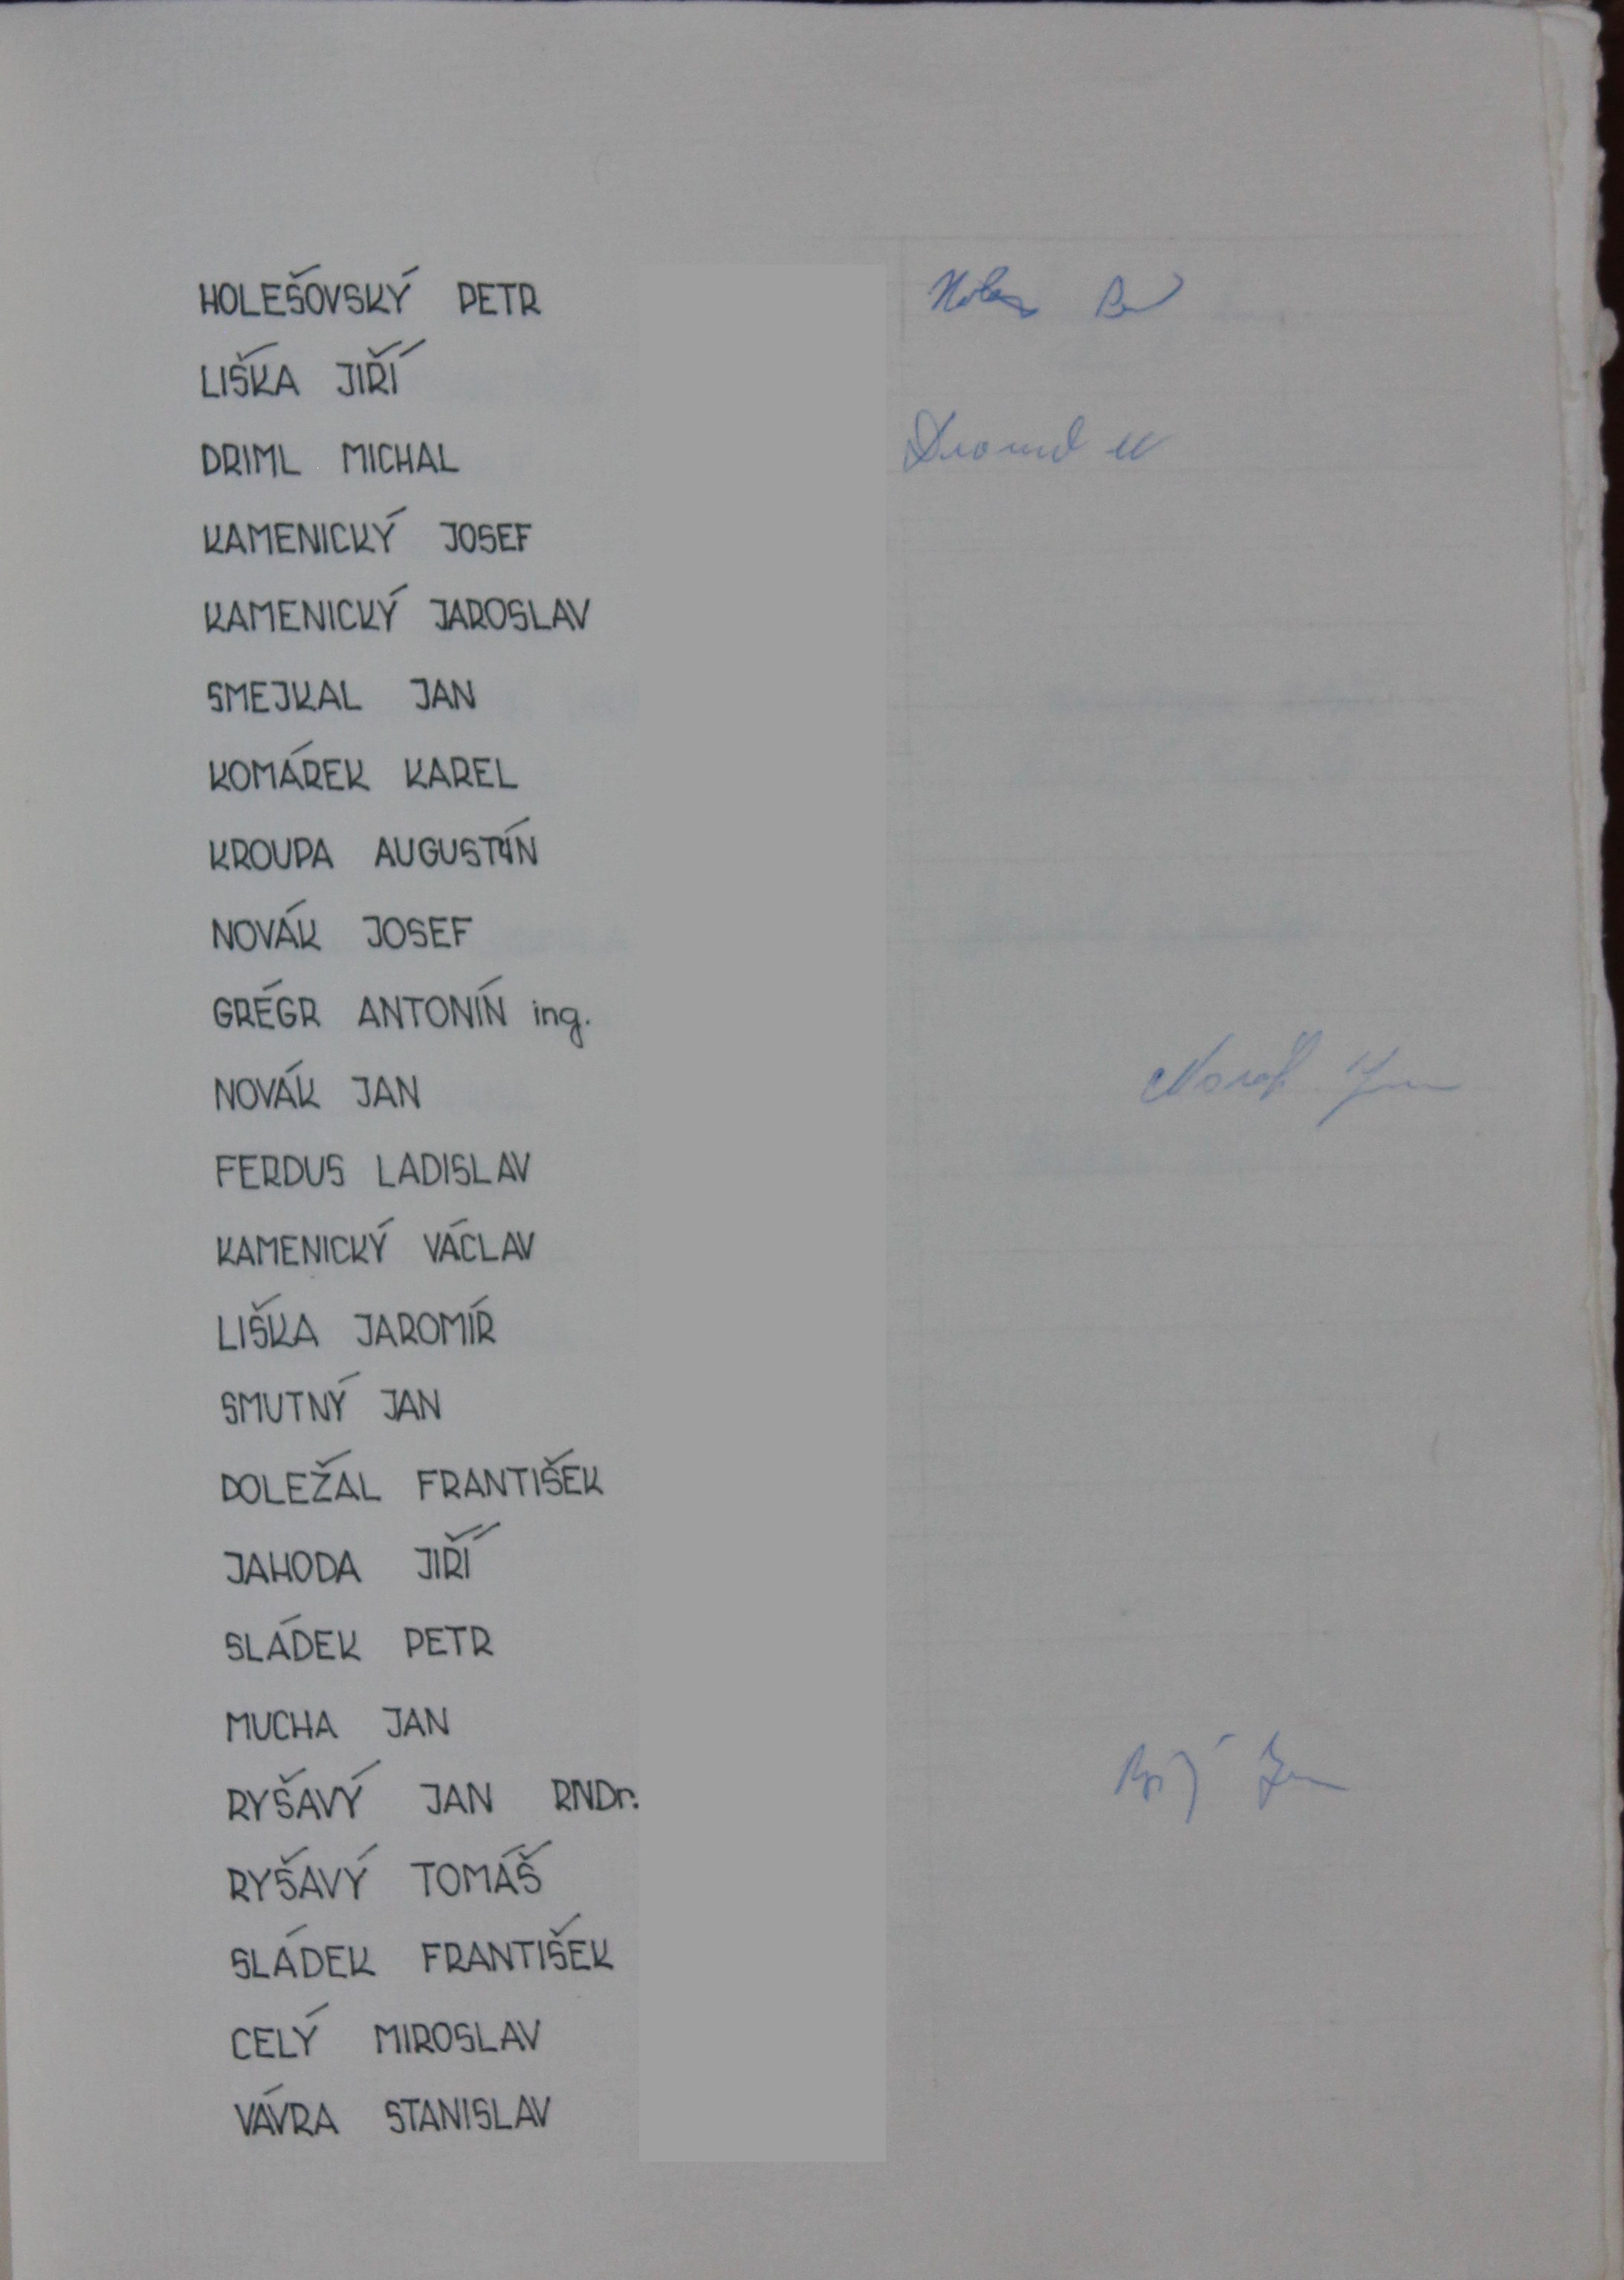 HOLEŠOVSKÝ PETR
LIŠKA JIŘÍ
DRIML MICHAL
KAMENICKÝ JOSEF
KAMENICKÝ JAROSLAV
SMEJKAL JAN
KOMÁREK KAREL
KROUPA AUGUSTÝN
NOVÁK JOSEF
GRÉGR ANTONÍN ing.
NOVÁK JAN Novák Jan
FERDUS LADISLAV
KAMENICKÝ VÁCLAV
LIŠKA JAROMÍR
SMUTNÝ JAN
DOLEŽAL FRANTIŠEK
JAHODA JIŘÍ
SLÁDEK PETR
MUCHA JAN
RYŠAVÝ JAN RNDr.
RYŠAVÝ TOMÁŠ
SLÁDEK FRANTIŠEK
CELÝ MIROSLAV
VÁVRA STANISLAV